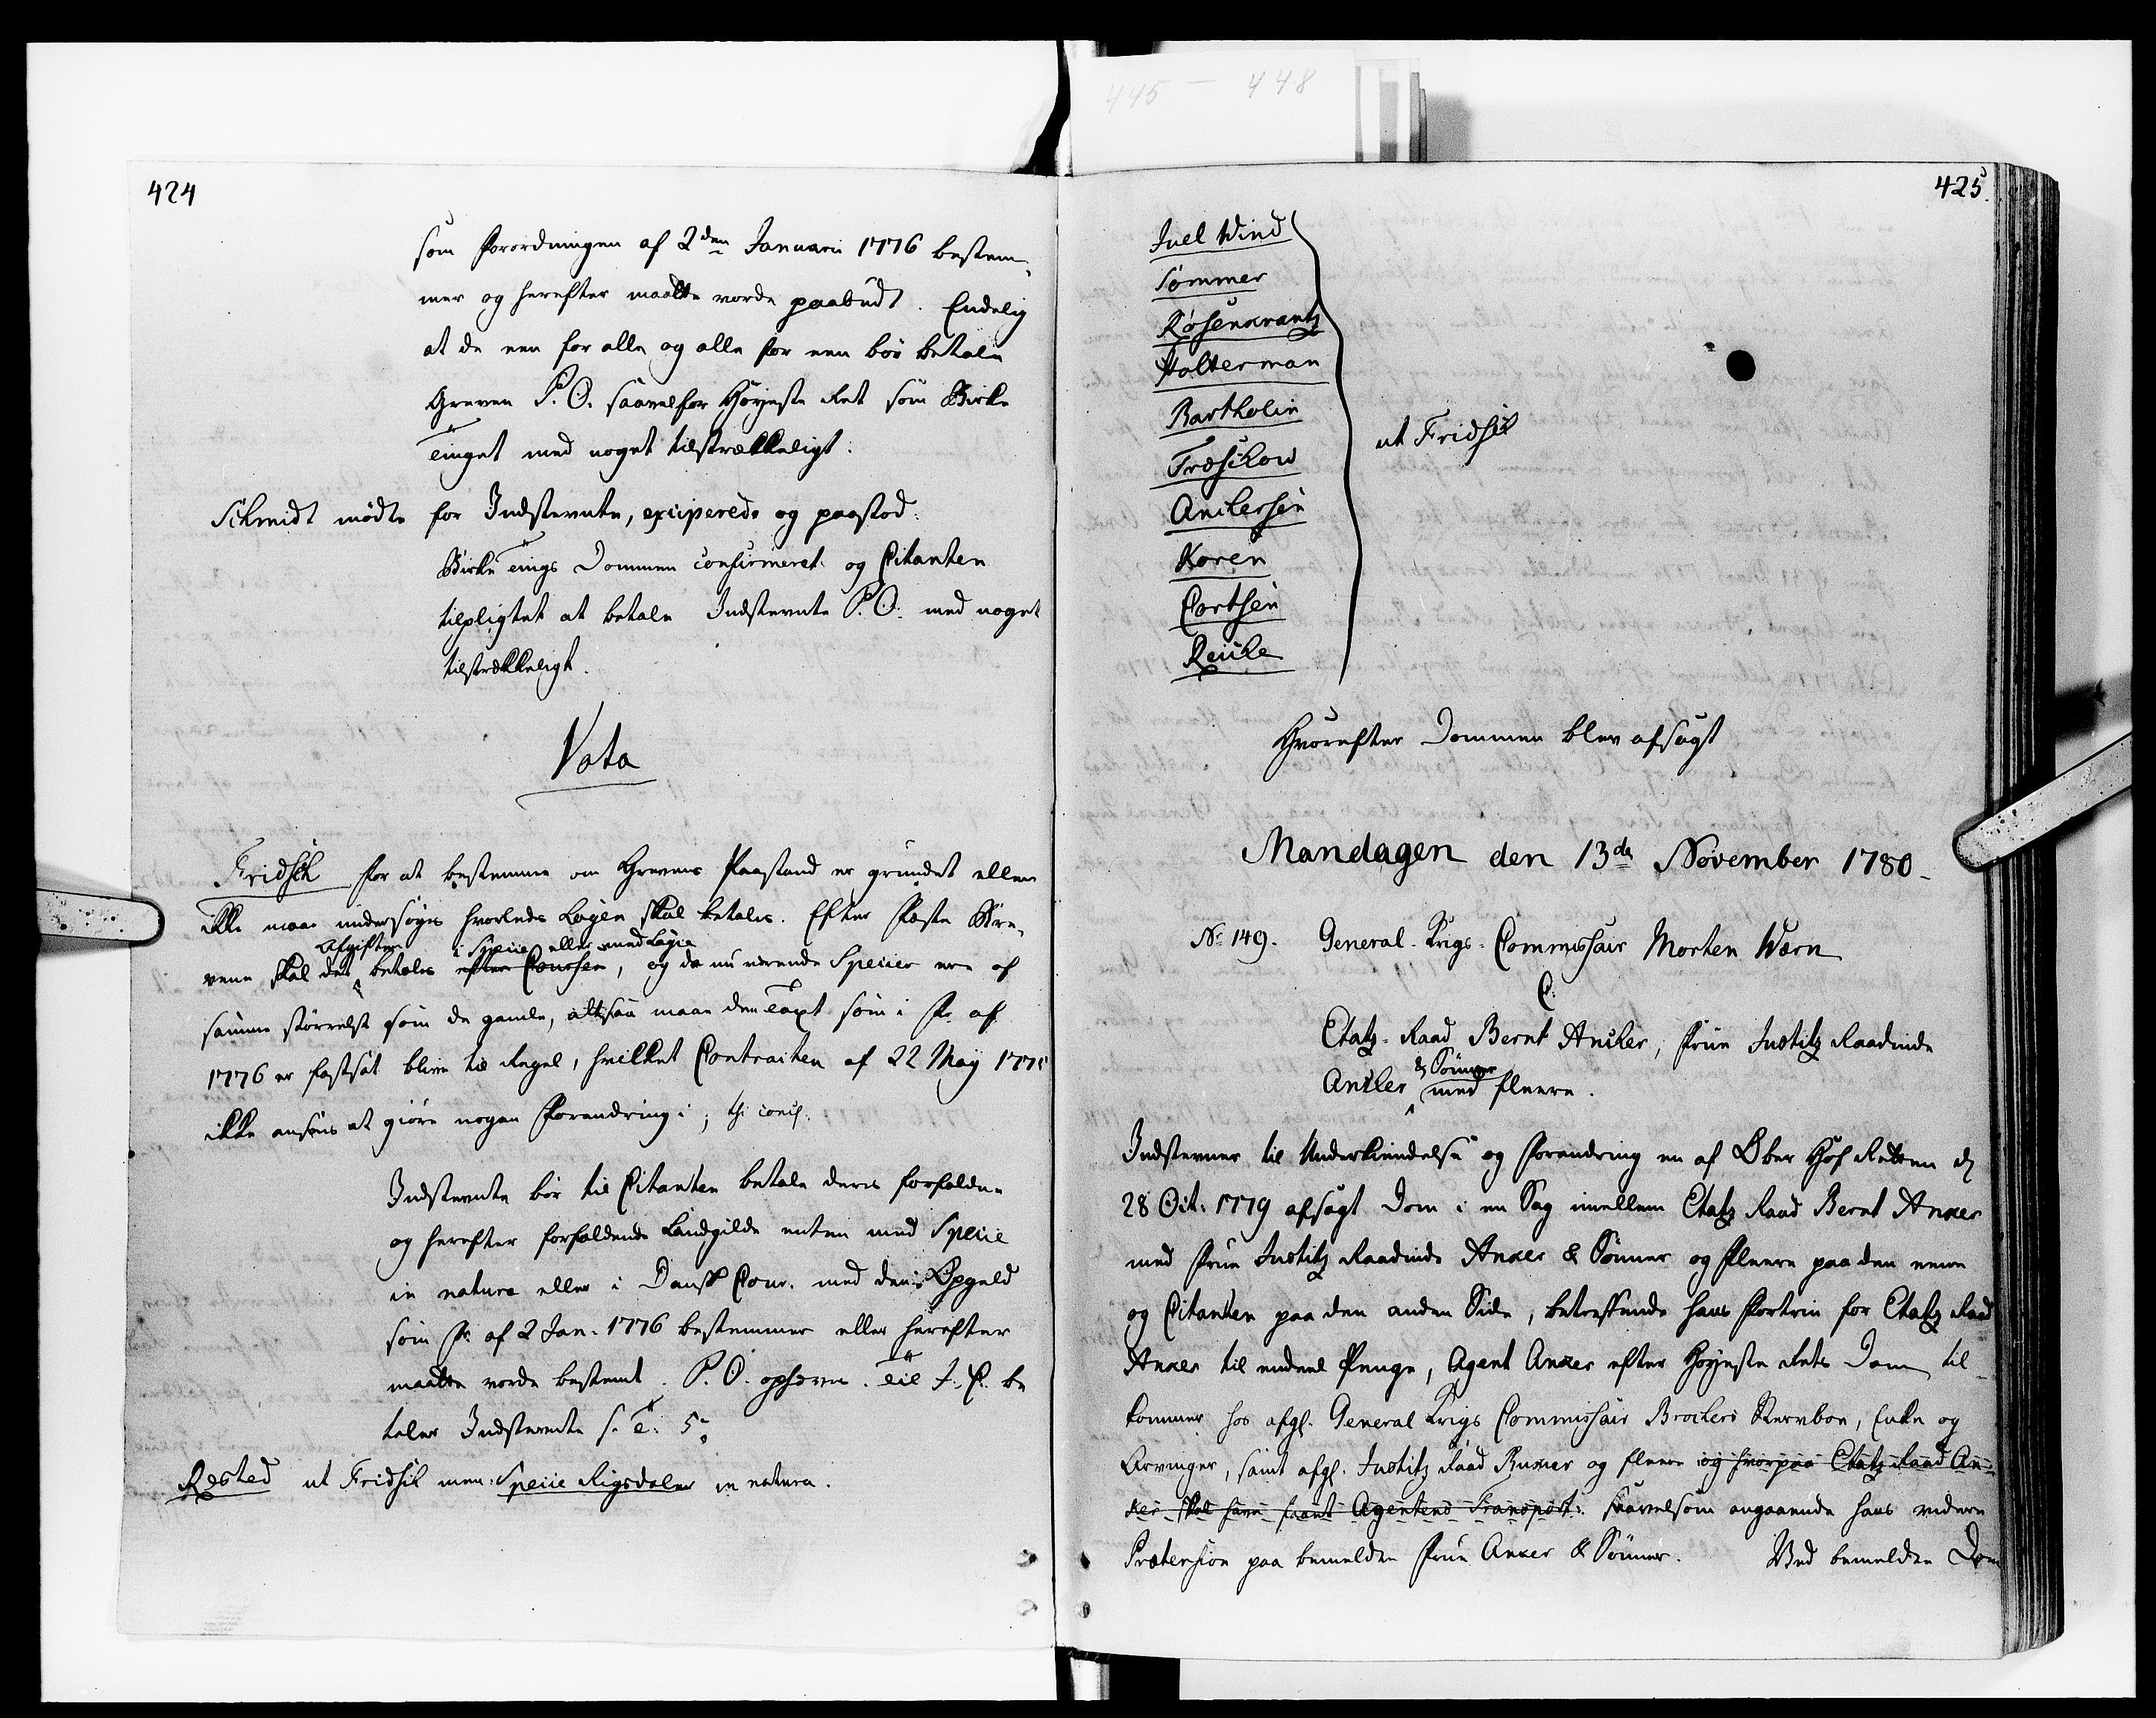 445 - 448
424
som Forordningen af 2den Januarii 1776 bestem-
mer og herefter maatte vorde paabudt. Endelig
at de een for alle og alle for een bør betale
Greven P. O. saavel for Høyeste Ret som Birke
Tinget med noget tilstrækkeligt.
Schmidt mødte for Indstevnte, exciperede og paastod:
Birke Tings Dommen confirmeret og Citanten
tilpligtet at betale Indstevnte P. O. med noget
tilstrækkeligt.
Vota
Fridsch for at bestemme om Grevens Paastand er grundet eller
ikke maae undersøges hvorledes Lagen skal betales. Efter Fæste Bre-
Afgiften i Specie eller med Lagie
vene skal det betales efter Coursen, og da nu værende Specier ere af
samme størrelse som de gamle, altsaa maae den Taxt som i Fr. af
1776 er fastsat blive til Regel, hvilket Contracten af 22 May 1775
ikke ansees at giøre nogen Forandring i; thi conch.
Indstevnte bør til Citanten betale deres forfaldne
og herefter forfaldende Landgilde enten med Specie
in natura eller i Dansk Cour. med den Opgeld
som Fr. af 2 Jan. 1776 bestemmer eller herefter
maatte vorde bestemt. P. O. ophæves. Til J. C. be
taler Indstevnte s. t. 5
Rosted ut Fridsch men: Specie Rigsdaler in natura.
425.
Juel Wind
Sommer
Rosenkrantz
Halterman
Bartholin
Treschow
Anchersen
Koren
Cortsen
Reiche
ut Fridsch
Hvorefter Dommen blev afsagt
Mandagen den 13de November 1780.
No 149. General-Krigs-Commissair Morten Wærn
C.
Etatz-Raad Bernt Ancker, Frue Justitz Raadinde
& Sönner
Ancker med fleere.
Indstevner til Underkiendelse og Forandring en af Ober Hof Retten d.
28 Oct: 1779 afsagt Dom i en Sag imellem Etatz Raad Bernt Anker
med Frue Justitz Raadinde Anker & Sönner og fleere paa den eene
og Citanten paa den anden Side, betreffende hans Fortrin for Etatz Raad
Anker til endeel Penge, Agent Anker efter Høyeste Rets Dom til-
kommer hos afgl. General Krigs Commissair Brochers Stervboe, Enke og
Arvinger, samt afgl. Justitz Raad Bunner og fleere og hvorpaa Etatz Raad An-
ker skal have faaet Agentens Transport: saavelsom angaaende hans videre
Prætension paa bemeldte Frue Anker & Sönner. Ved bemeldte Dom